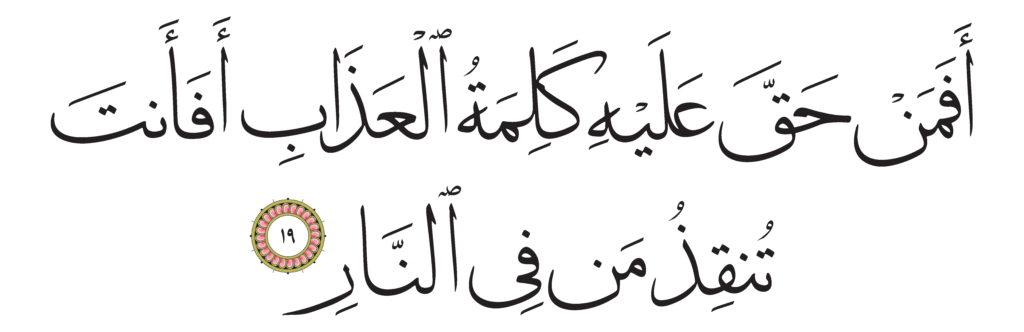 أَفَمَنْ حَقَّ عَلَيْهِ كَلِمَةُ ٱلْعَذَابِ أَفَأَنتَ
تُنقِذُ مَن فِى ٱلنَّارِ ١٩